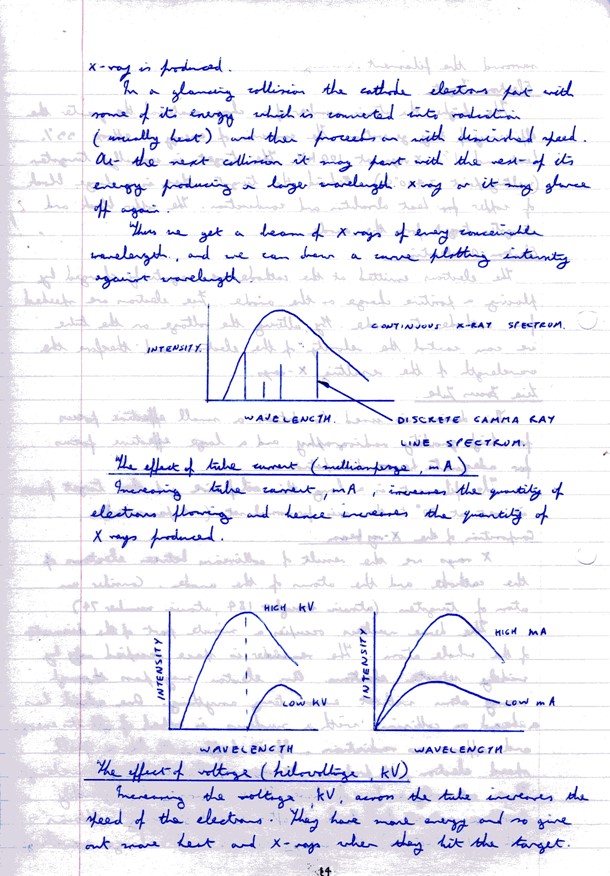 x-ray is produced.
In a glancing collision the cathode electrons part with
some of its energy which is converted into radiation
(usually heat) and then proceeds on with diminished speed.
At the next collision it may part with the rest of its
energy producing a large wavelength X ray or it may glance
off again.
Thus we get a beam of X rays of every conceivable
wavelength, and we can draw a curve plotting intensity
against wavelength.
CONTINUOUS X-RAY SPECTRUM.
INTENSITY.
WAVELENGTH.
DISCRETE GAMMA RAY
LINE SPECTRUM.
The effect of tube current (milliamperage, mA)
Increasing tube current, mA, increases the quantity of
electrons flowing and hence increases the quantity of
X rays produced.
INTENSITY
HIGH KV
LOW KV
WAVELENGTH
INTENSITY
HIGH MA
LOW MA
WAVELENGTH
The effect of voltage (kilovoltage, KV)
Increasing the voltage, KV, across the tube increases the
speed of the electrons. They have more energy and so give
out more heat and X-rays when they hit the target.
14